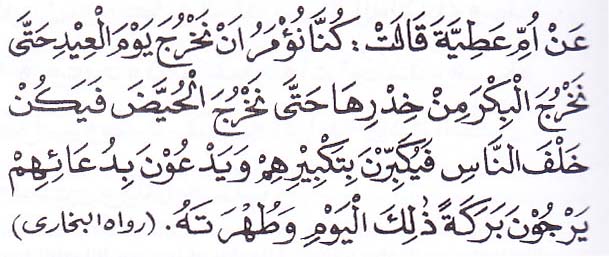 عَنْ اُمِّ عَطِيَّةَ قَالَتْ : كُنَّا نُؤْمَرُ اَنْ نَخْرُجَ يَوْمَ الْعِيْدِ حَتَّى
نَخْرُجَ الْبِكْرَ مِنْ خِدْرِهَا حَتَّى نَخْرُجَ الْحُيَّضَ فَيَكُنْ
خَلْفَ النَّاسِ فَيُكَبِّرْنَ بِتَكْبِيْرِهِمْ وَيَدْعُوْنَ بِدُعَائِهِمْ
يَرْجُوْنَ بَرَكَةً ذٰلِكَ الْيَوْمِ وَطُهْرَتَهُ. (رواه البخارى)